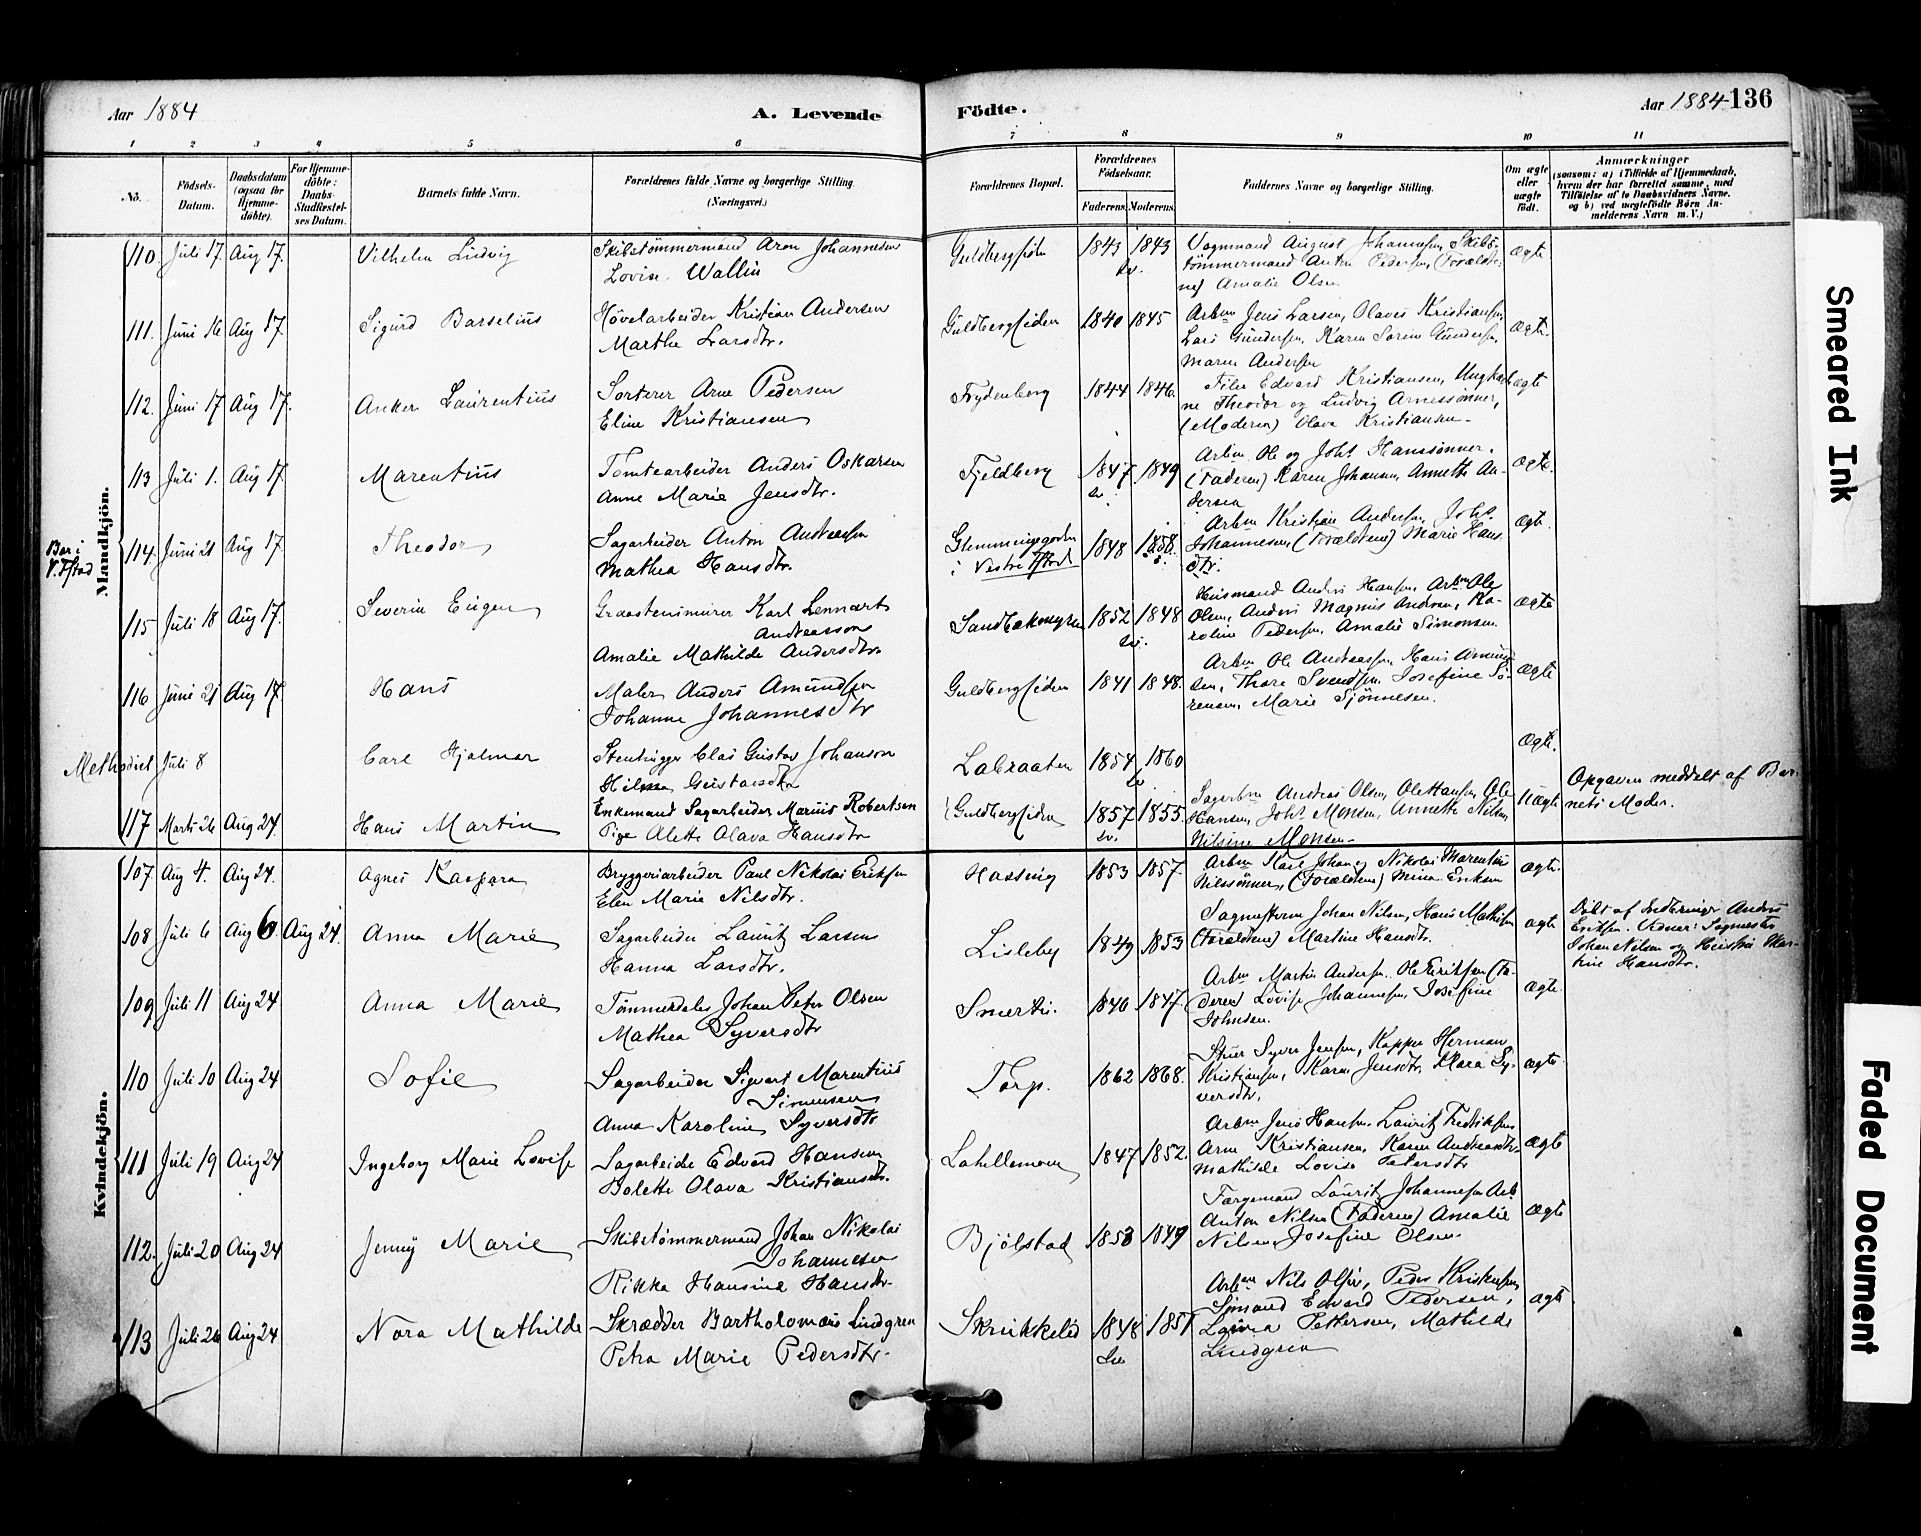 Aar 1884
A. Levende
Födte.
Aar 1884 136
1 2 3 4 5 6 7 8 9 10 11
No.
Födsels-Datum.
Daabsdatum (ogsaa for Hjemme-döbte).
For Hjemme-döbte: Daabs-Stadfæstel-ses Datum.
Barnets fulde Navn.
Forældrenes fulde Navne og borgerlige Stilling.
(Næringsvei.)
Forældrenes Bopæl.
Forældrenes Födselsaar.
Faderens. Moderens.
Faddernes Navne og borgerlige Stilling.
Om ægte eller uægte födt.
Anmærkninger
(saasom: a) i Tilfælde af Hjemmedaab, hvem der har forrettet samme, med Tilföielse af to Daabsvidners Navne, og b) ved uægtefödte Börn Anmelderens Navn m. V.)
Mandkjön.
110. Juli 17. Aug 17. Vilhelm Ludvig
Skibstømmermand Aron Johannesen
Lovise Wallin
1843 1843
sv.
Vognmand August Johannesen, Skibs-
tømmermand Anton Pedersen, (Forældre-
ne) Amalie Olsen
ægte
111. Juni 16 Aug 17. Sigurd Barselius
Høvelarbeider Kristian Andersen
Marthe Larsdtr.
Guldbergsiden 1840 1845
Arbm Jens Larsen, Olaves Kristiansen,
Lars Gundersen, Karen Gundersen,
Maren Andersen
ægte.
112. Juni 17 Aug 17. Anker Laurentius
Sorterer Arne Pedersen
Eline Kristiansen
Frydenberg 1844 1846.
Edvard Kristiansen, Ungkarle-
ne Theodor og Ludvig Arnessønner,
(Moderen) Olava Kristiansen.
ægte
113 Juli 1. Aug 17. Marentius
Tomtearbeider Anders Oskarsen
Anne Marie Jensdtr.
Fjeldberg 1847 1849
sv.
Arbm Ole og Johs Hanssønner.
(Faderen) Karen Johansen, Annette An-
dersen
ægte.
Bor i
V. Fstad
114. Juni 21 Aug 17 Theodor
Sagarbeider Anton Andreassen
Mathea Hansdtr.
i Vestre Fstad 1848 1858.
Arbm Kristian Andersen, Johs
Johannesen (Forældrene) Marie Hans
dtr.
ægte.
115 Juli 18 Aug 17. Severin Eugen
Graastensmurer Karl Lennart
Andreasson
Amalie Mathilde Andersdtr
1852 1848
sv.
Husmand Anders Hansen, Arbm Ole
Olsen, Anders Magnus Andersen, Ka-
roline Pedersen, Amalie Simonsen.
ægte
116 Juni 21 Aug 17. Hans
Maler Anders Amundsen
Johanne Johannesdtr
Guldbergsiden 1841 1848.
Arbm Ole Andreassen, Hans Amund
sen, Thore Svendsen, Josefine Sø-
rensen, Marie Sjønnesen.
ægte
Methodist Juli 8 Carl Hjalmar
Stenhugger Clas Gustav Johanson
Hilma Gustavsdtr
Labraaten 1854 1860
sv
Ægte.
117 Marts 26 Aug 24. Hans Martin
Enkemand Sagarbeider Marius Robertsen
Pige Alette Olava Hansdtr
Guldbergsiden 1857 1855.
sv.
Sagarbm Andreas Olsen, Ole Hansen, Ole
Hansen, Johs Monsen, Annette Nilsen,
Nilsine Monsen.
Uægte
Opgaven meddelt af Bar-
nets Moder.
Kvindekjön.
107 Aug 4. Aug 24. Agnes Kaspara
Bryggeriarbeider Paul Nikolai Eriksen
Elen Marie Nilsdtr.
Hassing 1853 1857.
Arbm Karl Johan og Nikolai Marentius
Nilssønner, (Forældrene) Mina Eriksen
ægte.
108 Juli 6 Aug 6. Aug 24. Anna Marie
Sagarbeider Laurits Larsen
Hanna Larsdtr.
Lisleby 1849 1853
Sagmester Johan Nilsen, Hans Mathisen
(Forældrene) Martine Hansdtr.
ægte
Døbt af Anders
Eriksen. Vidner: Sagmester
Johan Nilsen og Hustru Mar-
tine Hansdtr.
109 Juli 11 Aug 24 Anna Marie
Johan Peter Olsen
Mathea Syversdtr
1840 1847.
Arbm Martin Andersen, Ole Eriksen (Fa-
deren) Lovise Johannesen, Josefine
Johnsen.
ægte
110 Juli 10 Aug 24 Sofie
Sagarbeider Sigvart Marentius
Simensen
Anna Karoline Syversdtr
Torp. 1862 1868.
Syver Jensen, Herman
Kristiansen, Karen Jensdtr. Klara Sy-
versdtr.
ægte
111 Juli 19 Aug 24 Ingeborg Marie Lovise
Sagarbeider Edvard Hansen
Bolette Olava Kristiansdtr.
Lahellemoen 1847 1852.
Arbm Jens Hansen, Laurits Fredriksen
Arne Kristiansen, Karen Andreasdtr.
Mathilde Lovise Petersdtr
ægte
112. Juli 20 Aug 24 Jenny Marie
Skibstømmermand Johan Nikolai
Johannesen
Rikka Hansine Hansdtr.
Bjølstad 1853 1849
Færgemand Laurits Johannesen Arb
Anton Nilsen (Faderen) Amalie
Nilsen, Josefine Olsen.
ægte
113 Juli 26 Aug 24 Nora Mathilde
Skrædder Bartholomæus Lindgren
Petra Marie Pedersdtr.
Skrukkelid 1848 1851
sv
Arbm Nils Olsen, Peder Kristensen,
Sjømand Edvard Pedersen,
Laura Pettersen, Mathilde
Lindgren
ægte
Smeared Ink
Faded Document